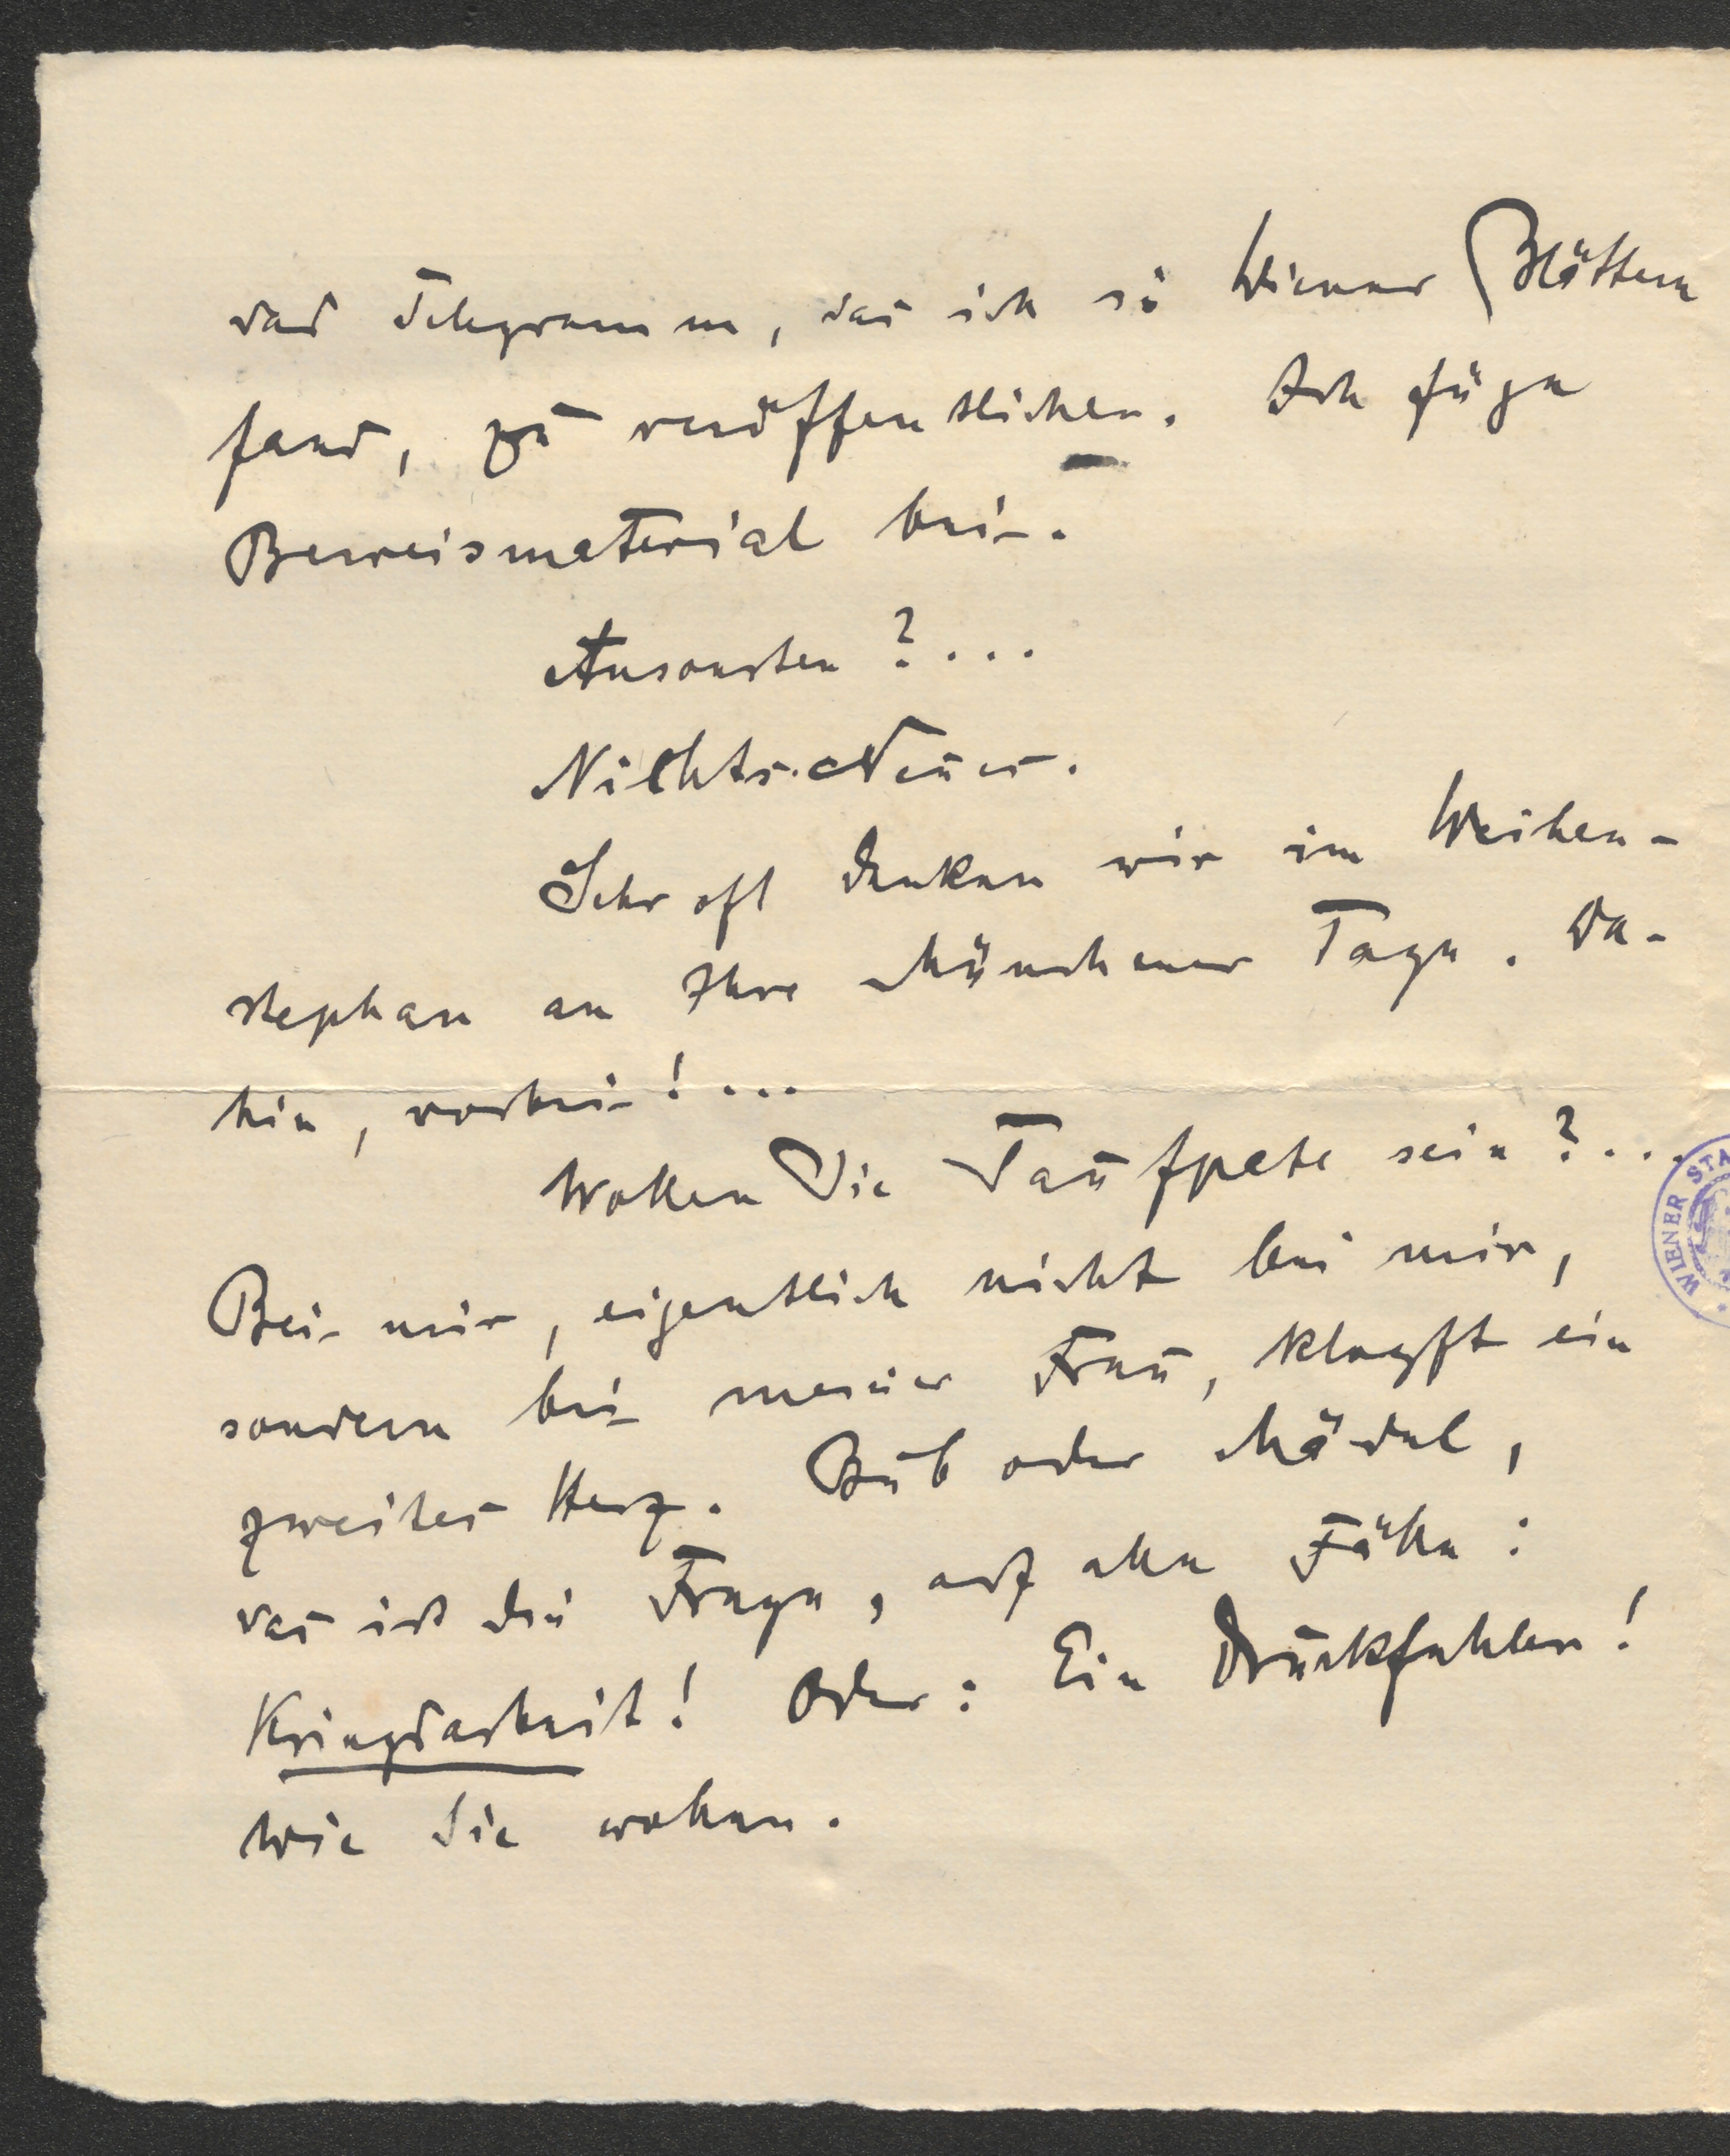 das Telegramm, das ich in Wiener Blättern
fand, zu veröffentlichen. Ich füge
Beweismaterial bei.
Ansonsten?...
Nichts Neues.
Sehr oft denken wir im Weihen-
stephan an Ihre Münchener Tage. Da-
hin, vorbei!...
Wollen Sie Taufpate sein?...
Bei mir, eigentlich nicht bei mir,
sondern bei meiner Frau, klopft ein
zweites Herz. Bub oder Mädel,
das ist die Frage, auf alle Fälle:
Kriegsarbeit! Oder: Ein Druckfehler!
Wie Sie wollen.
WIENER STA